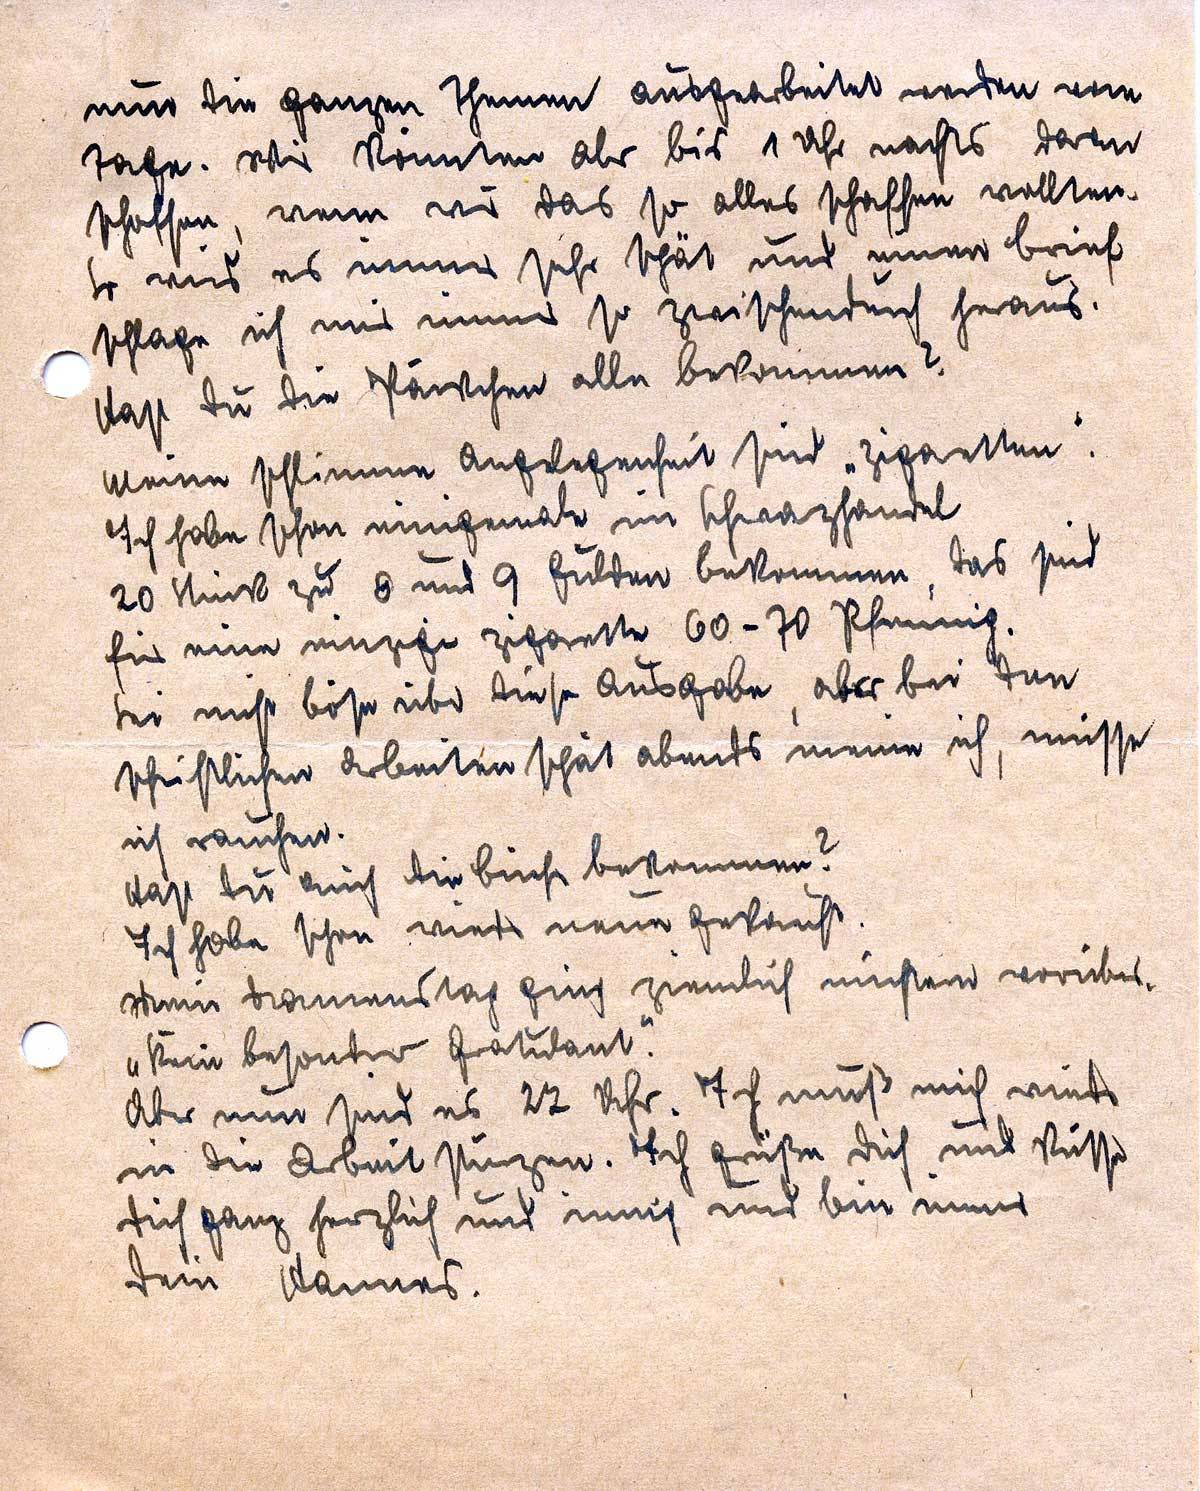 nun die ganzen Themen ausgearbeitet werden vom
Tage. Wir könnten aber bis 1 Uhr nachts daran
schaffen, wenn wir das so alles schaffen wollten.
So wird es immer sehr spät und einen brief
schlage ich mir immer so zwischendurch heraus.
Hast du die Päckchen alle bekommen?
Meine schlimme Angelegenheit sind „Zigaretten“.
Ich habe schon einigemale im Schwarzhandel
20 Stück zu 8 und 9 Gulden bekommen, das sind
für eine einzige Zigarette 60-70 Pfennig.
Sei nicht böse über diese Ausgabe, aber bei den
schriftlichen Arbeiten spät abends meine ich, müsse
ich rauchen.
Hast du auch die bücher bekommen?
Ich habe schon wieder neue gekauft.
Mein Namenstag ging ziemlich nüchtern vorüber.
„Kein besonder Gratulant“.
Aber nun sind es 22 Uhr. Ich muß mich wieder
in die Arbeit stürzen. Ich grüße dich und küsse
dich ganz herzlich und innig und bin immer
dein Hannes.